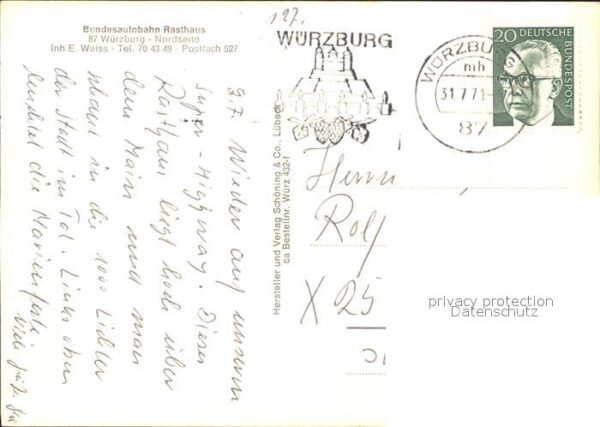 Bundesautobahn Rasthaus
87 Würzburg - Nordseite
Inh. E. Weiss - Tel. 70 43 49 - Postfach 527
197.
WÜRZBURG
WÜRZBURG
mh
31.7.71
87
20 DEUTSCHE
BUNDESPOST
Wieder auf unserem
Super-Highway. Dieses
Rasthaus liegt hoch über
dem Main und man
schaut in die 1000 Lichter
der Stadt im Tal. Links oben
leuchtet die Marienfeste.
Viele
Hersteller und Verlag Schöning & Co., Lübeck
Bestellnr. Würz 432-f
Herrn
Rolf
X 25
privacy protection
Datenschutz